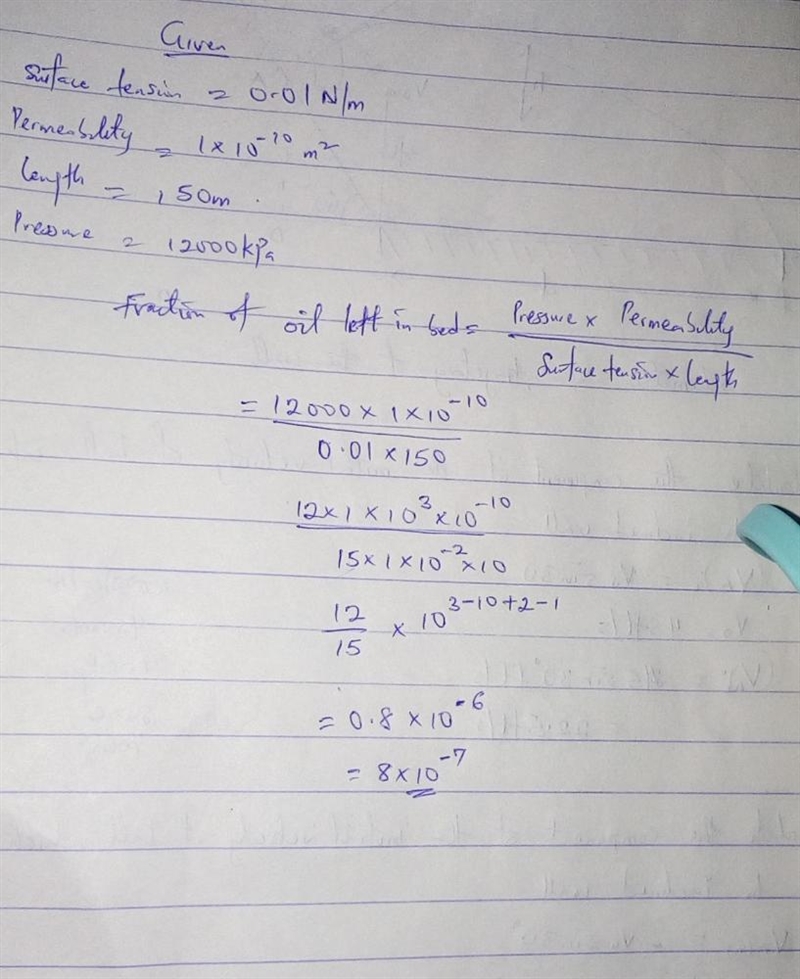 Given
Surface tension = 0.01 N/m
Permeability = 1 × 10^-10 m²
length = 150m
Pressure = 12000kPa
Fraction of oil left in bed = Pressure × Permeability
Surface tension × length
= 12000 × 1 × 10^-10
0.01 × 150
12 × 1 × 10^3 × 10^-10
15 × 1 × 10^-2 × 10
12
15 × 10^3-10+2-1
= 0.8 × 10^-6
= 8 × 10^-7